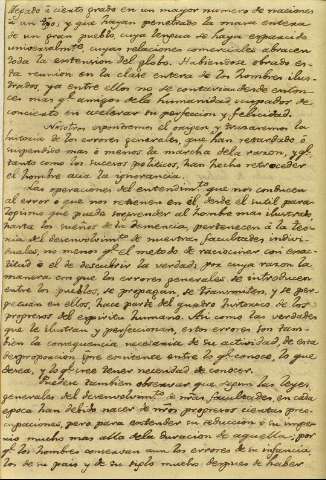 llegado á cierto grado en un mayor numero de naciones
á un tpo; y que hayan penetrado la masa entera
de un gran pueblo, cuya lengua se haya esparcido
universalmte, cuyas relaciones comerciales abracen
toda la extension del globo. Habiendose obrado en-
tre reunion en la clase entera de los hombres ilus-
trados, ya entre ellos no se contarian desde enton-
ces mas qe amigos de la humanidad ocupados de
concierto en acelerar su perfeccion y felicidad.
Nosotros expondremos el origen y trazaremos la
historia de los errores generales, que han retardado ó
suspendido mas ó menos la marcha de la razon, y qe
tanto como los sucesos politicos, han hecho retroceder
el hombre acia la ignorancia.
Las operaciones del entendimto que nos conducen
al error ó que nos retienen en él, desde el sutil para-
logismo que puede sorprender al hombre mas ilustrado,
hasta los sueños de la demencia, pertenecen á la teo-
ria del desenvolvimto de nuestras facultades indivi-
duales, no menos qe el metodo de raciocinar con exac-
titud ó el de descubrir la verdad; por cuya razon la
manera con que los errores generales se introducen
entre los pueblos, se propagan, se transmiten, y se per-
petuan en ellos, hace parte del quadro historico de los
progresos del espiritu humano. Asi como las verdades
que le ilustran y perfeccionan, estos errores son tam-
bien la consequencia necesaria de su actividad, de esta
desproporcion spre existente entre lo qe conoce, lo que
desea, y lo qe cree tener necesidad de conocer.
Puedese tambien observar que segun las leyes
generales del desenvolvimto de ntras facultades, en cada
epoca han debido nacer de ntros progresos ciertas preo-
cupaciones, pero para extender su seduccion ó su impe-
rio mucho mas alla de la duracion de aquella; por
qe los hombres conservan aun los errores de su infancia,
los de su pais y de su siglo mucho despues de haber